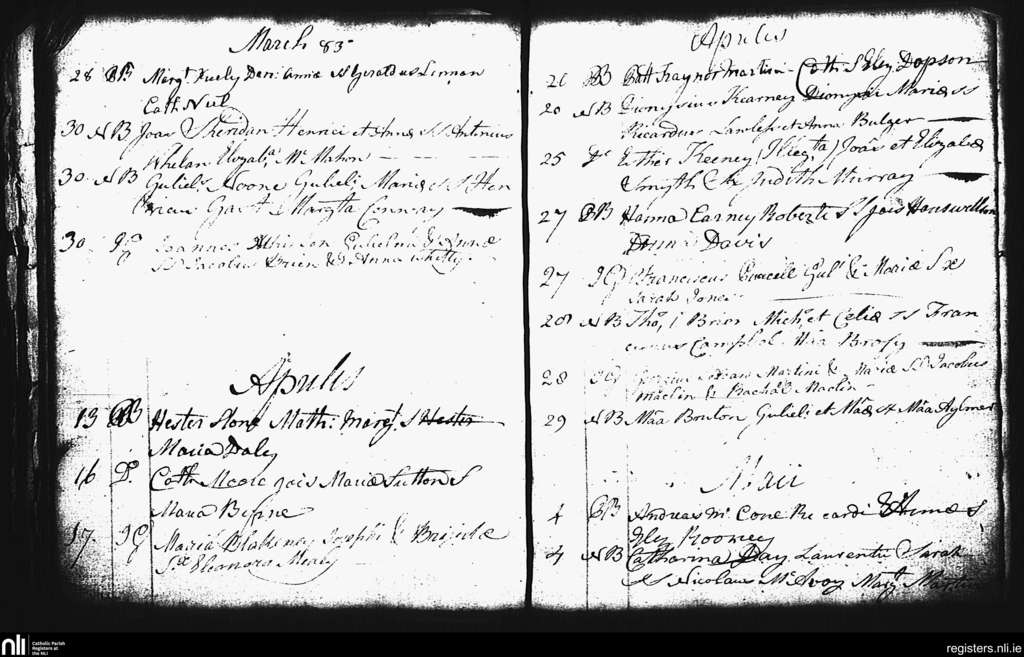 March 83
28 BB Margt Keely Dan: Annæ SS Geraldus Lennan
Cath Neil
30 NB Joan Sheridan Henrici et Annæ SS Antonius
Whelan Elizabta Mc Mahon
30 NB Guliels Noone Gulieli Mariæ et SS Hen
Margtta Conway
30 JG Joannes Gulielmi & Annæ
SS Jacobus Brien & Anna Whitty
Aprulis
13 BB Hester Stone Math: Margt S Hester
Maria Daly
16 D. Cath Moore Jois Mariæ Sutton S
Maria Byrne
17 JG Maria Blakeney Josephi & Brigidæ
Sr Eleanora Mealy
Aprulis
26 BB Patt Traynor Martin Cath S Eley Dopson
20 NB Dionysius Kearney Dionysii Mariæ SS
Ricardus Lawless et Anna Bulger
25 Esther Keeney (Illegta) Joas et Elizabæ
Smyth S Judith Murray
27 BB Hanna Earney Roberti SS Jois
Davis
27 JG Franciscus Gul & Mariæ Sx
Sarah Jones
28 NB Tho. Brien Mich, et Celiæ SS Fran
ciscus Campbel Brofy
28 JG Martini & Mariæ SS Jacobus
Maclin & Rachæl Maclin
29 NB Maa Bruton Gulieli et Maæ SS Maa Aylmer
Maii
4 BB Andreas Mc Cone Ricardi & Annæ S
Eley Rooney
4 NB Catharina Day Laurentii Sarah
SS Nicolaus McAvoy Margt
nli
Catholic Parish
Registers at
the NLI
registers.nli.ie